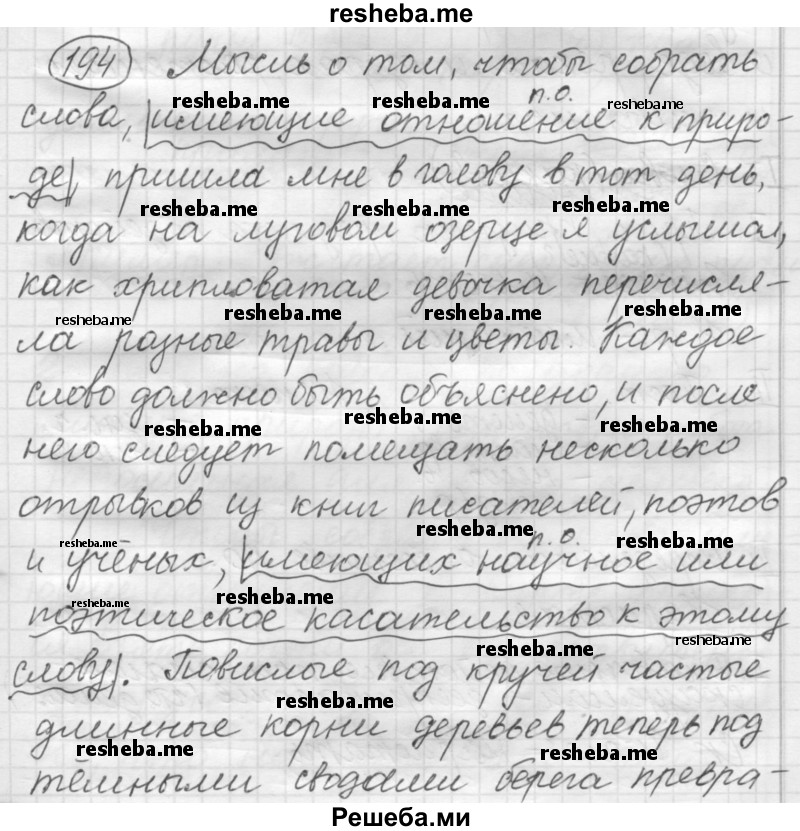 resheba.me
194 Мысль о том, чтобы собрать
resheba.me resheba.me п.о. resheba.me
слова, имеющие отношение к приро-
де, пришла мне в голову в тот день,
resheba.me resheba.me resheba.me
когда на луговом озерце я услышал,
как хрипловатая девочка перечисля-
resheba.me resheba.me resheba.me resheba.me
ла разные травы и цветы. Каждое
слово должно быть объяснено, и после
resheba.me resheba.me resheba.me
него следует помещать несколько
отрывков из книг писателей, поэтов
resheba.me resheba.me п.о. resheba.me
и учёных, имеющих научное или
resheba.me resheba.me
поэтическое касательство к этому
resheba.me resheba.me
слову. Повислые под кручей частые
resheba.me
длинные корни деревьев теперь под
resheba.me resheba.me
тёмными сводами берега превра-
Решеба.ми